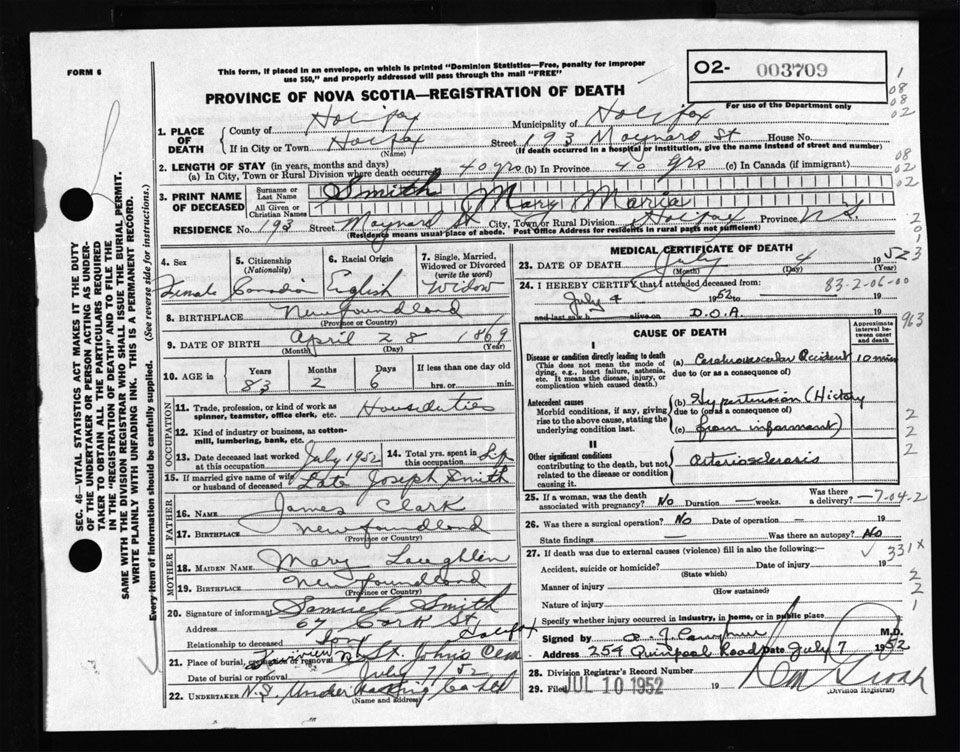 FORM 6
This form, if placed in an envelope, on which is printed "Dominion Statistics—Free, penalty for improper
use $50," and properly addressed will pass through the mail "FREE"
O2- 003709
For use of the Department only
PROVINCE OF NOVA SCOTIA—REGISTRATION OF DEATH
1
08
08
02
1. PLACE OF DEATH
County of Halifax Municipality of Halifax
If in City or Town Halifax Street 193 Maynard St House No.
(Name) (If death occurred in a hospital or institution, give the name instead of street and number)
2. LENGTH OF STAY (in years, months and days)
(a) In City, Town or Rural Division where death occurred 40 yrs (b) In Province 40 yrs (c) In Canada (if immigrant)
08
02
02
3. PRINT NAME OF DECEASED
Surname or Last Name Smith
All Given or Christian Names Mary Maria
RESIDENCE No. 193 Street Maynard St City, Town or Rural Division Halifax Province N.S.
(Residence means usual place of abode. Post Office Address for residents in rural parts not sufficient)
2
0
1
3
4. Sex Female
5. Citizenship (Nationality) Canadian
6. Racial Origin English
7. Single, Married, Widowed or Divorced (write the word) Widow
8. BIRTHPLACE Newfoundland
(Province or Country)
9. DATE OF BIRTH April 28 1869
(Month) (Day) (Year)
10. AGE in Years 83 Months 2 Days 6 If less than one day old hrs. or min.
OCCUPATION
11. Trade, profession, or kind of work as spinner, teamster, office clerk, etc. House duties
12. Kind of industry or business, as cotton-mill, lumbering, bank, etc.
13. Date deceased last worked at this occupation July 1952
14. Total yrs. spent in this occupation Life
15. If married give name of wife or husband of deceased Late Joseph Smith
FATHER
16. Name James Clark
17. Birthplace Newfoundland
(Province or Country)
MOTHER
18. MAIDEN NAME Mary Laughlin
19. BIRTHPLACE Newfoundland
(Province or Country)
20. Signature of informant Samuel Smith
Address 67 Cork St. Halifax
Relationship to deceased Son
21. Place of burial, cremation or removal Fairview St. Johns Cem
Date of burial or removal July 7, 52
22. UNDERTAKER N.S. Undertaking Co Ltd
(Name and address)
MEDICAL CERTIFICATE OF DEATH
23. DATE OF DEATH July 4 1952
(Month) (Day) (Year)
24. I HEREBY CERTIFY that I attended deceased from:
83-2-06-00
July 4 1952 19
and last saw h alive on D.O.A. 19
963
CAUSE OF DEATH
Approximate interval between onset and death
I
Disease or condition directly leading to death
(This does not mean the mode of dying, e.g., heart failure, asthenia, etc. It means the disease, injury, or complication which caused death.)
(a) Cerebrovascular Accident 10 min
due to (or as a consequence of)
Antecedent causes
Morbid conditions, if any, giving rise to the above cause, stating the underlying condition last.
(b) Hypertension (History
due to (or as a consequence of)
(c) from informant)
2
2
2
II
Other significant conditions
contributing to the death, but not related to the disease or condition causing it.
arteriosclerosis
25. If a woman, was the death associated with pregnancy? No Duration — weeks. Was there a delivery? —
7-04-2
26. Was there a surgical operation? No Date of operation — 19
State findings — Was there an autopsy? No
27. If death was due to external causes (violence) fill in also the following:—
331x
Accident, suicide or homicide? Date of injury 19
(State which)
Manner of injury
(How sustained)
Nature of injury
2
2
1
Specify whether injury occurred in industry, in home, or in public place
Signed by M.D.
Address 254 Quinpool Road Date July 7 1952
28. Division Registrar's Record Number
29. Filed JUL 10 1952 19
(Division Registrar)
SEC. 46—VITAL STATISTICS ACT MAKES IT THE DUTY
OF THE UNDERTAKER OR PERSON ACTING AS UNDER-
TAKER TO OBTAIN ALL THE PARTICULARS REQUIRED
IN THE "REGISTRATION OF DEATH" AND TO FILE THE
SAME WITH THE DIVISION REGISTRAR WHO SHALL ISSUE THE BURIAL PERMIT.
WRITE PLAINLY WITH UNFADING INK. THIS IS A PERMANENT RECORD.
Every item of information should be carefully supplied. (See reverse side for instructions.)